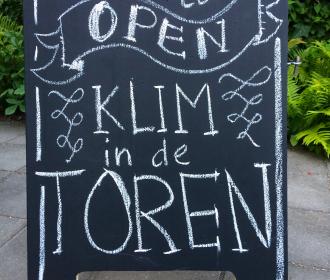 OPEN
KLIM
in de
TOREN